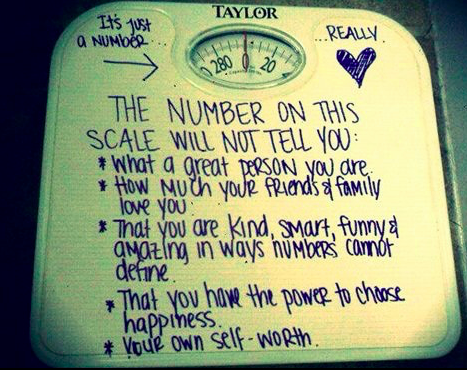 TAYLOR
It's just
a NUMBER...
...REALLY.
280 0 20
THE NUMBER ON THIS
SCALE WILL NOT TELL YOU:
* What a great PERSON you are.
* How Much your friends & family
love you.
* That you are kind, smart, funny &
amazing in ways numbers cannot
define.
* That you have the power to choose
happiness.
* your own self-worth.